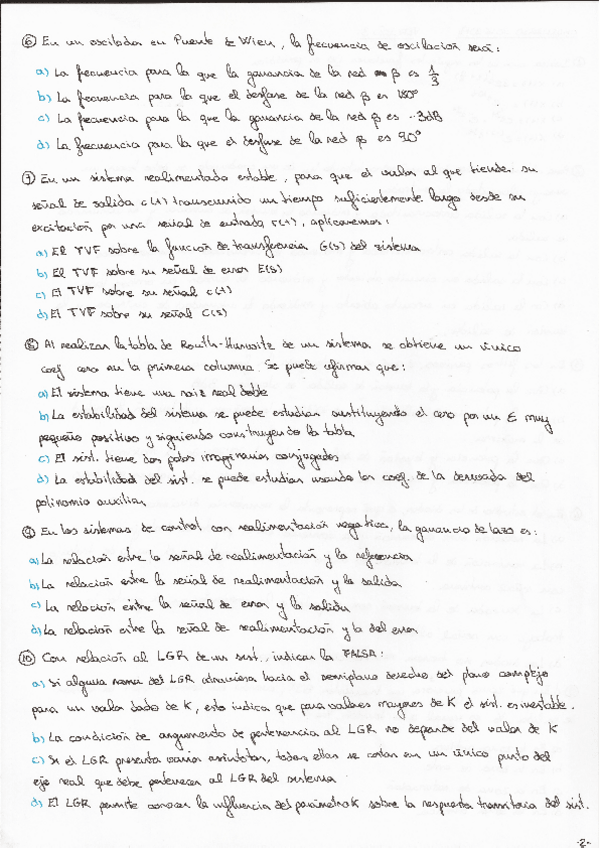 ⑥ En un oscilador en Puente de Wien, la frecuencia de oscilación será:
a) La frecuencia para la que la ganancia de la red β es 1/3
b) La frecuencia para la que el desfase de la red β es 180°
c) La frecuencia para la que la ganancia de la red β es -3dB
d) La frecuencia para la que el desfase de la red β es 90°
⑦ En un sistema realimentado estable, para que el valor al que tiende su
señal de salida c(t) transcurrido un tiempo suficientemente largo desde su
excitación por una señal de entrada r(t), aplicaremos:
a) El TVF sobre la función de transferencia G(s) del sistema
b) El TVF sobre su señal de error E(s)
c) El TVF sobre su señal c(t)
d) El TVF sobre su señal C(s)
⑧ Al realizar la tabla de Routh-Hurwitz de un sistema se obtiene un único
coef cero en la primera columna. Se puede afirmar que:
a) El sistema tiene una raiz real doble
b) La estabilidad del sistema se puede estudiar sustituyendo el cero por un ε muy
pequeño positivo y siguiendo construyendo la tabla
c) El sist. tiene dos polos imaginarios conjugados
d) La estabilidad del sist. se puede estudiar usando los coef. de la derivada del
polinomio auxiliar
⑨ En los sistemas de control con realimentación negativa, la ganancia de lazo es:
a) La relación entre la señal de realimentación y la referencia
b) La relación entre la señal de realimentación y la salida
c) La relación entre la señal de error y la salida
d) La relación entre la señal de realimentación y la del error
⑩ Con relación al LGR de un sist., indicar la FALSA:
a) Si alguna rama del LGR atraviesa hacia el semiplano derecho del plano complejo
para un valor dado de K, esto indica que para valores mayores de K el sist. es inestable.
b) La condición de argumento de pertenencia al LGR no depende del valor de K
c) Si el LGR presenta varias asíntotas, todas ellas se cortan en un único punto del
eje real que debe pertenecer al LGR del sistema
d) El LGR permite conocer la influencia del parámetro K sobre la respuesta transitoria del sist.
-2-